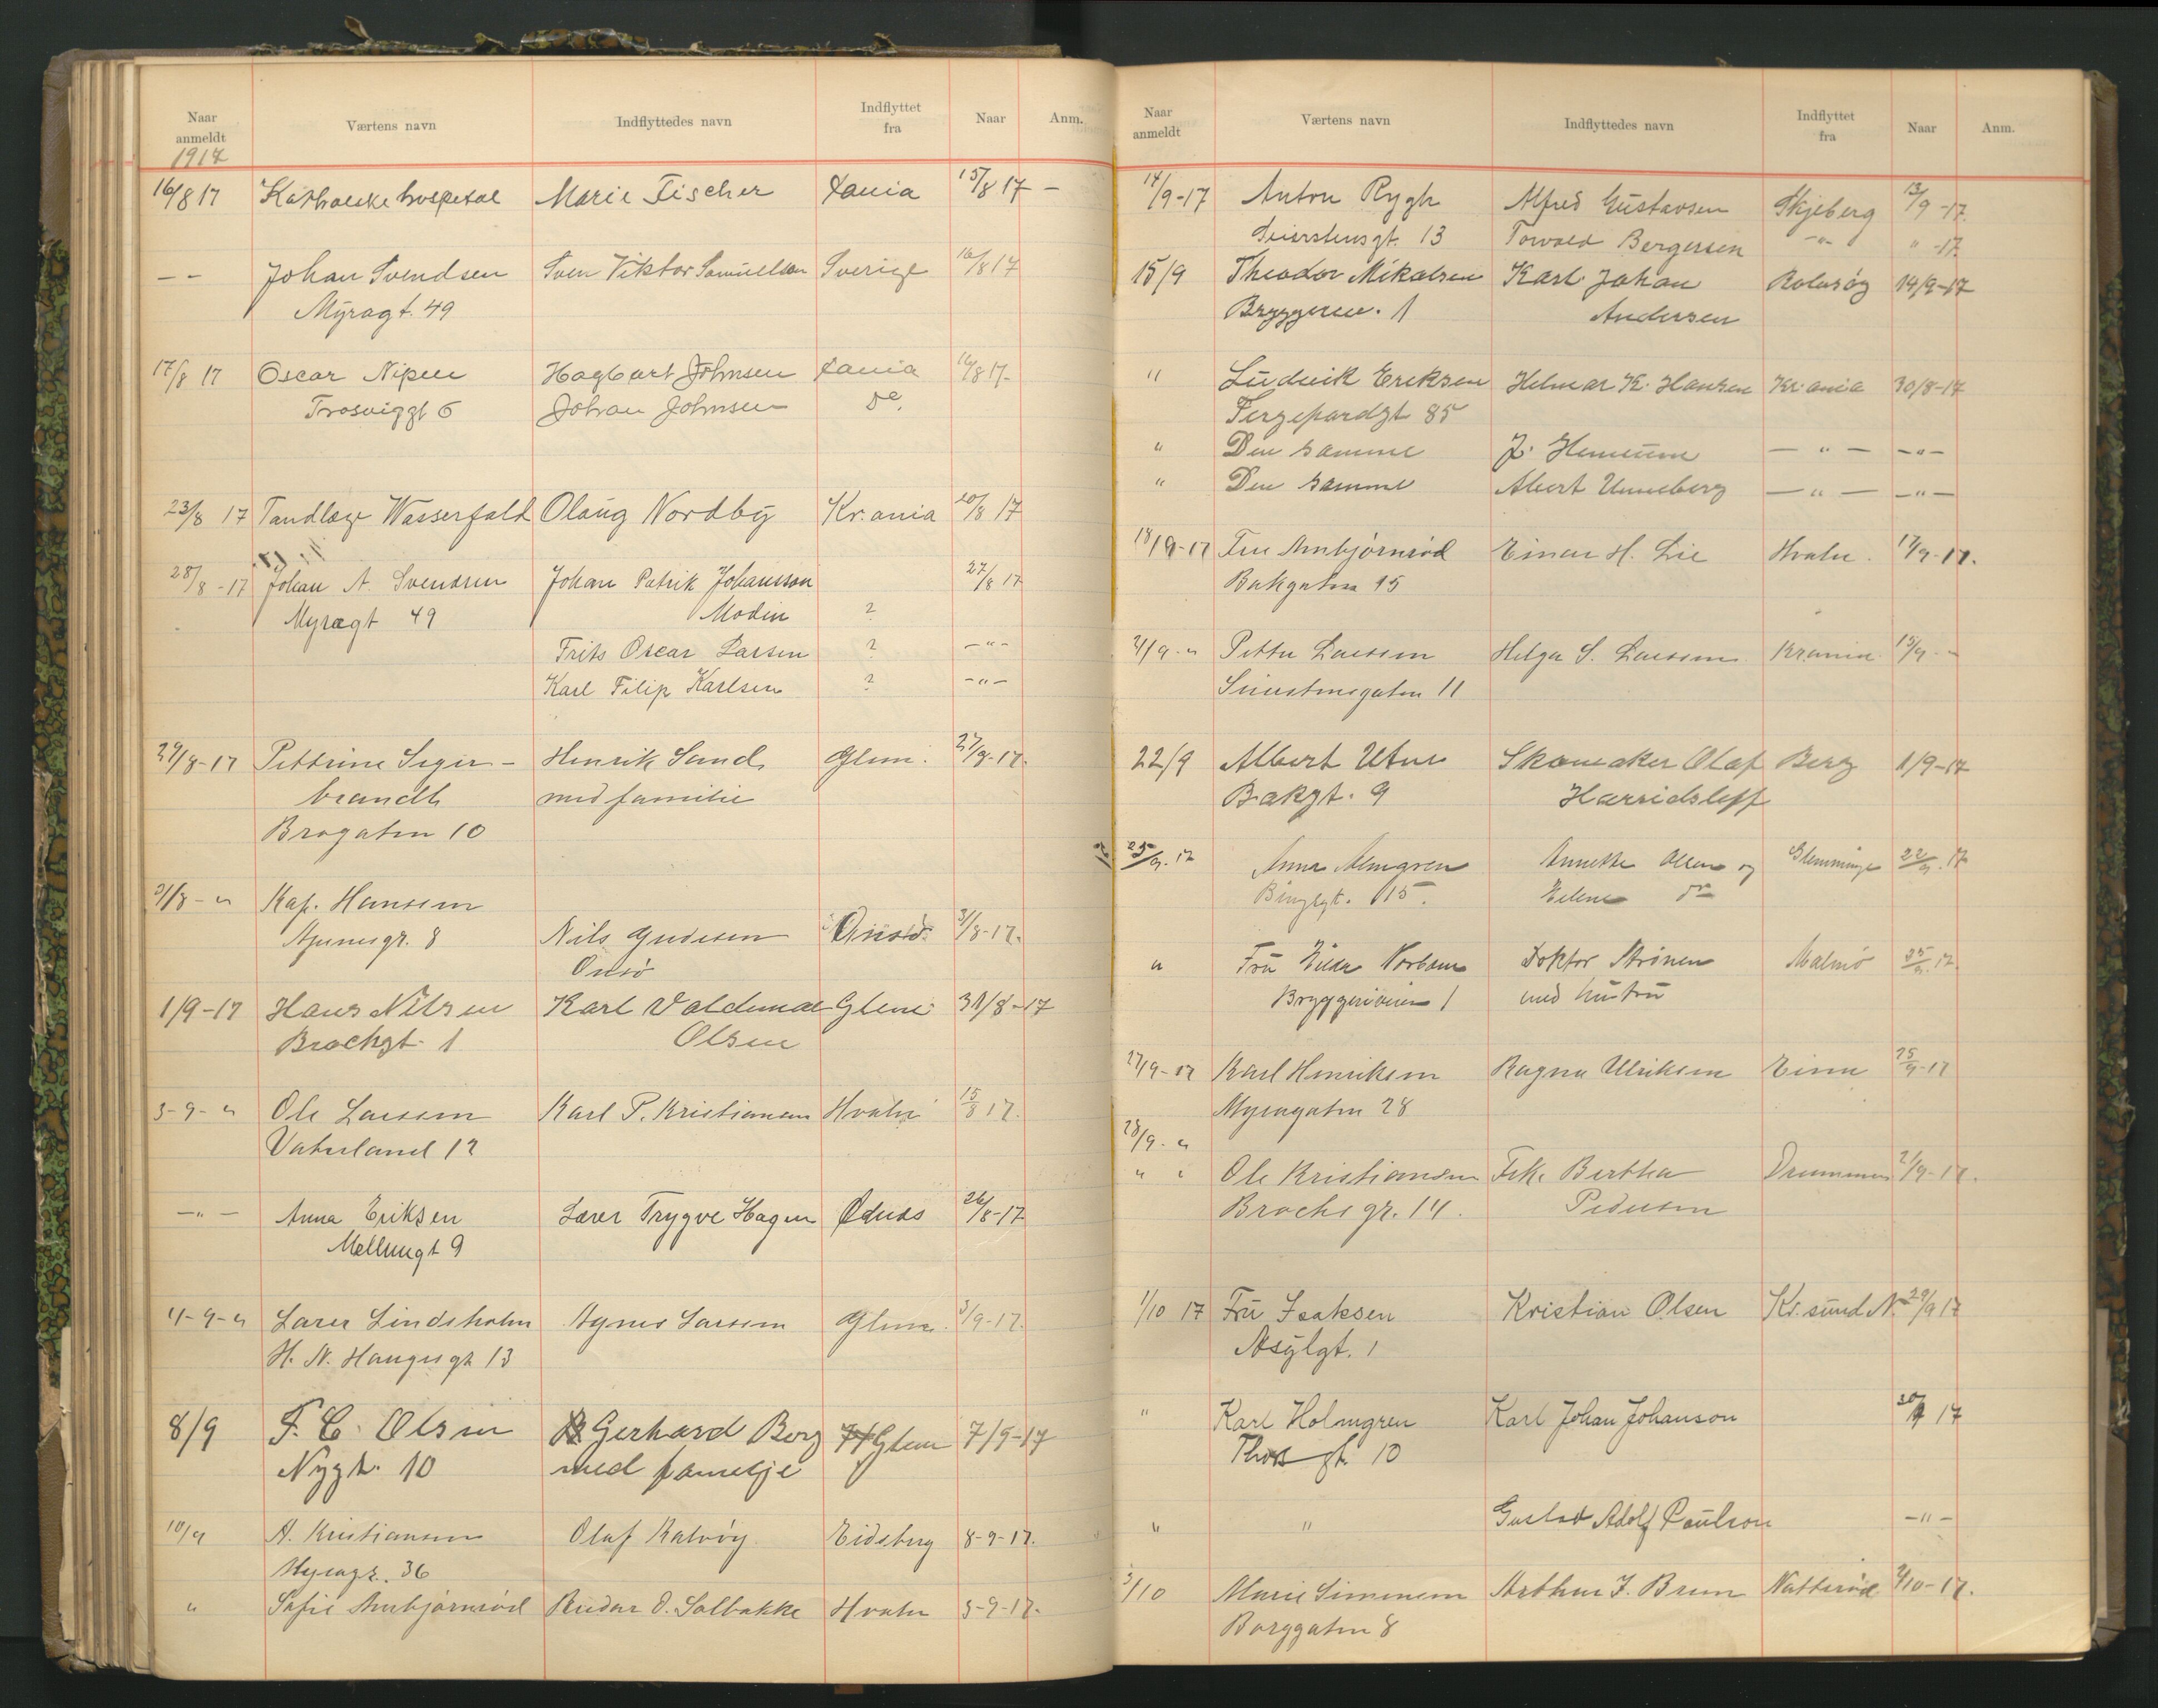 Naar anmeldt Værtens navn Indflyttedes navn Indflyttet fra Naar Anm.
1917
16/8 17 Katholske hospital Marie Fischer Xania 15/8 17 -
- - Johan Svendsen Sven Viktor Samuelsen Sverige 16/8 17
Myragt. 49
17/8 17 Oscar Nipen Hagbart Johnsen Xania 16/8 17-
Trosviggt 6 Johan Johnsen do.
23/8 17 Tandlæge Wasserfald Olaug Nordby Kr.ania 20/8 17
28/8-17 Johan A. Svendsen Johan Patrik Johansson 27/8 17
Myragt 49 Modin ?
Frits Oscar Larsen ? -"-
Karl Filip Karlsen ? -"-
29/8-17 Pettrine Seger- Henrik Sand Glem. 17.
brandt med familie
Brogaten 10
31/8-" Kap. Hansen
8 Nils 31/8-17.
Onsø
1/9-17 Hans Nilsen Karl Valdemar Glem. 31/8-17
Brochgt. 1 Olsen
3-9-" Ole Larsen Karl P. Kristiansen Hvaler 15/8 17.
Vaterland 12
-"- Anna Eriksen Lærer Trygve Hagen 26/8-17
Mellumgt 9
4-9-" Lærer Lindeholm Agnes Larsen Glem. 3/9-17.
H. N. Haugesgt 13
8/9 F. C. Olsen Gerhard Berg Glem 7/9-17
Nygt. 10 med familje
10/9 A. Kristiansen Olaf Kalvøy Eidsberg 8-9-17.
Myragt. 36
" Sofie Arnbjørnrød Reidar O. Solbakke Hvaler 3-9-17.
Naar anmeldt Værtens navn Indflyttedes navn Indflyttet fra Naar Anm.
14/9-17 Anton Rygh Alfred Gustavsen Skjeberg 13/9-17
13 Torvald Bergersen -"- " -17.
15/9 Theodor Mikalsen Karl Johan Rolvsøy 14/9-17
Bryggerivei. 1 Andersen
" Ludvik Eriksen Helmar K. Hansen Kr.ania 30/8-17
Fergeportgt 85
" Den samme J. -"- -"-
" Den samme Albert Unneberg -"- -"-
18/9-17 Fru Arnbjørnrød Einar H. Lie Hvaler. 17/9-17.
Bakgaten 15
21/9-" Petter Larsen Helga S. Larsen Kr.ania 15/9-"
11
22/9 Albert Utne Skomaker Olaf Berg 1/9-17
Bakgt. 9 Harridsleff
25/9.17 Anna Almgren Annette Olsen og Glemminge 22/9.17
15. Helene do
" Fru Hilda Norbom Doktor Malmø 25/9.17.
Bryggeriveien 1 med hustru
27/9-17 Karl Henriksen Ragna Ulriksen 25/9-17
Myragaten 28
28/9-"
" " Ole Kristiansen Frk. Bertha Drammen 21/9-17.
Brochsgt. 14. Pedersen
1/10 17 Fru Isaksen Kristian Olsen Kr.sund N. 29/9 17
Asylgt. 1
" Karl Holmgren Karl Johan Johanson 17
10
" " Gustav Adolf Paulson -"-
3/10 Marie Simensen Arthur J. Brun 2/10-17.
Borggaten 8